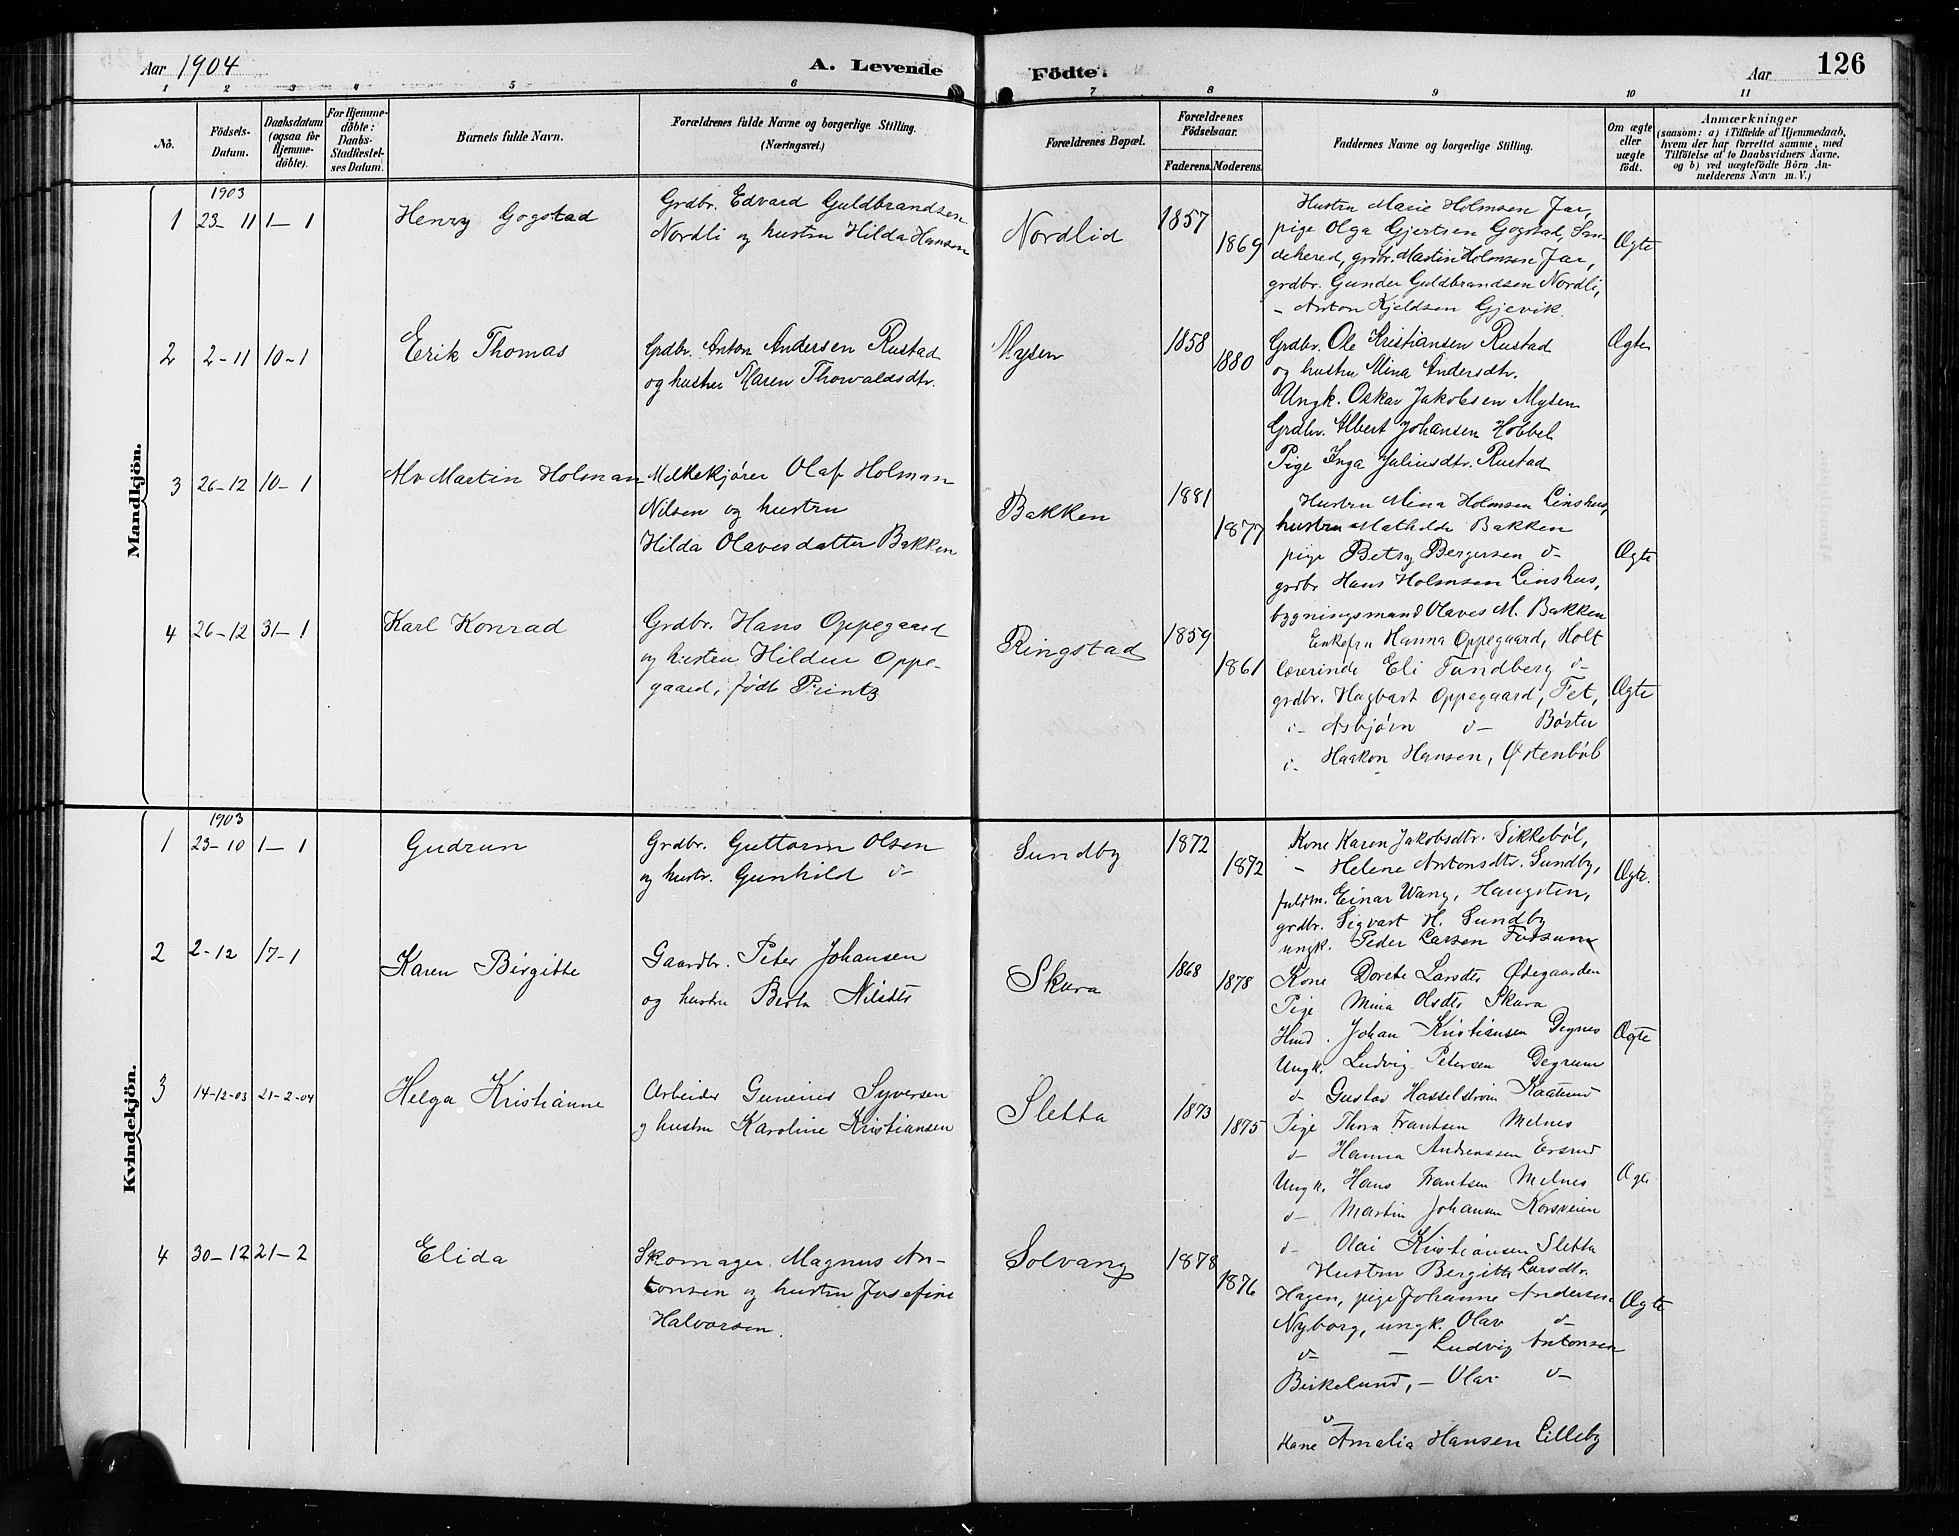 Aar 1904
A. Levende
Födte.
Aar
126
1 2 3 4 5 6 7 8 9 10 11
No.
Födsels-
Datum.
Daabsdatum
(ogsaa for
Hjemme-
döbte).
For Hjemme-
döbte:
Daabs-
Stadfæstel-
ses Datum.
Barnets fulde Navn.
Forældrenes fulde Navne og borgerlige Stilling.
(Næringsvei.)
Forældrenes Bopæl.
Forældrenes
Födselsaar.
Faderens. Moderens.
Faddernes Navne og borgerlige Stilling.
Om ægte
eller
uægte
født.
Anmærkninger
(saasom: a) i Tilfælde af Hjemmedaab,
hvem der har forrettet samme, med
Tilföielse af to Daabsvidners Navne.
og b) ved uægtefödte Börn An-
melderens Navn m. V.)
Mandkjön.
1903
1 23-11 1-1 Henry Gogstad
Grdbr. Edvard Guldbrandsen
Nordli og hustru Hilda Hansen
Nordlid 1857 1869
Hustru Marie Holmsen Jar,
pige Olga Gjertsen Gogstad, San-
dehered, grdbr. Martin Holmsen Jar,
grdbr. Gunder Guldbrandsen Nordli,
- Anton Kjeldsen Gjevik.
Ægte
2 2-11 10-1 Erik Thomas
Grdbr. Anton Andersen Rustad
og hustru Maren Thowaldsdtr.
Mysen 1858 1880
Grdbr. Ole Kristiansen Rustad
og hustru Mina Andersdtr.
Ungk. Oskar Jakobsen Mysen
Grdbr. Albert Johansen Hobbel
Pige Inga Juliusdtr. Rustad
Ægte
3 26-12 10-1 Alv Martin Holman
Melkekjører Olaf Holman
Nilsen og hustru
Hilda Olavesdatter Bakken
Bakken 1881 1877
Hustru Mina Holmsen Linshus,
hustru Mathilde Bakken
pige Betsy Bergersen d-
grdbr Hans Holmsen Linshus,
bygningsmand Olaves M. Bakken
Ægte
4 26-12 31-1 Karl Konrad
Grdbr. Hans Oppegaard
og hustru Hildur Oppe-
gaard, født Printz
Ringstad 1859 1861
Enkefru Hanna Oppegaard, Holt
lærerinde Eli Tandberg d-
grdbr. Hagbart Oppegaard, Fet,
d- Asbjørn d- Børter
d- Haakon Hansen, Østenbøl
Ægte
Kvindekjön.
1903
1 23-10 1-1 Gudrun
Grdbr. Guttorm Olsen
og hustr. Gunhild d-
Sundby 1872 1872
Kone Karen Jakobsdtr. Sikkebøl,
- Helene Antonsdtr. Sundby,
fuldm. Einar Wang, Haugsten,
grdbr. Sigvart H. Sundby
ungk. Peder Larsen Fosum
Ægte.
2 2-12 17-1 Karen Birgitte
Gaardbr. Peter Johansen
og hustru Berta Nilsdtr
Skura 1868 1878
Kone Dorete Larsdtr Ødegaarden
Pige Mina Olsdtr Skura
Hmd. Johan Kristiansen Degnes
Ungk. Ludvig Petersen Degrum
d- Gustav Hasselstrøm Kaatund
Ægte
3 14-12-03 21-2-04 Helga Kristianne
Arbeider Gunerius Syversen
og hustru Karoline Kristiansen
Sletta 1873 1875
Pige Thora Frantsen Melnes
d- Hanna Andreassen Ersrud
Ungk. Hans Frantsen Melnes
d- Martin Johansen Korsveien
d- Olai Kristiansen Sletta
Ægte
4 30-12 21-2 Elida
Skomager Magnus An-
tonsen og hustru Josefine
Halvorsen.
Solvang 1878 1876
Hustru Bergitte Larsdtr.
Hagen, pige Johanne Andersen
Nyborg, ungk. Olav d-
d- - Ludvig Antonsen
Birkelund, - Olav d-
d-
Kone Amalia Hansen Lilleby
Ægte